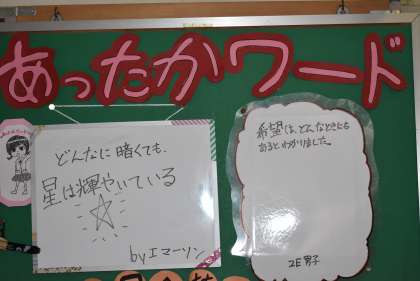 あったかワード
どんなに暗くても、
星は輝やいている
byエマーソン
希望は、どんなときにも
あるとわかりました。
2E男子